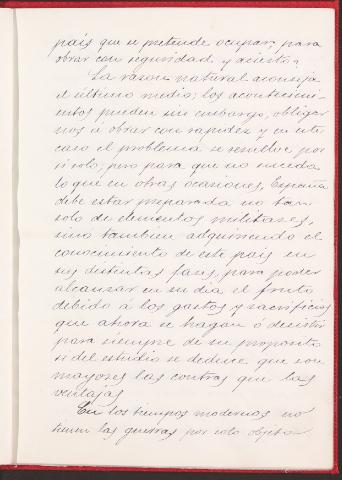 país que se pretende ocupar, para
obrar con seguridad y acierto?
La razon natural aconseja
el último medio; los acontecimi-
entos pueden sin embargo, obligar
nos á obrar con rapidez y en este
caso el problema se resuelve por
si solo; pero para que no suceda
lo que en otras ocasiones, España
debe estar preparada no tan
solo de elementos militares,
sino tambien adquiriendo el
conocimiento de este pais en
sus distintas fases, para poder
alcanzar en su dia el fruto
debido á los gastos y sacrificios
que ahora se hagan ó desistir
para siempre de su proposito
si del estudio se deduce que son
mayores las contras que las
ventajas
En los tiempos modernos no
tienen las guerras por solo objeto